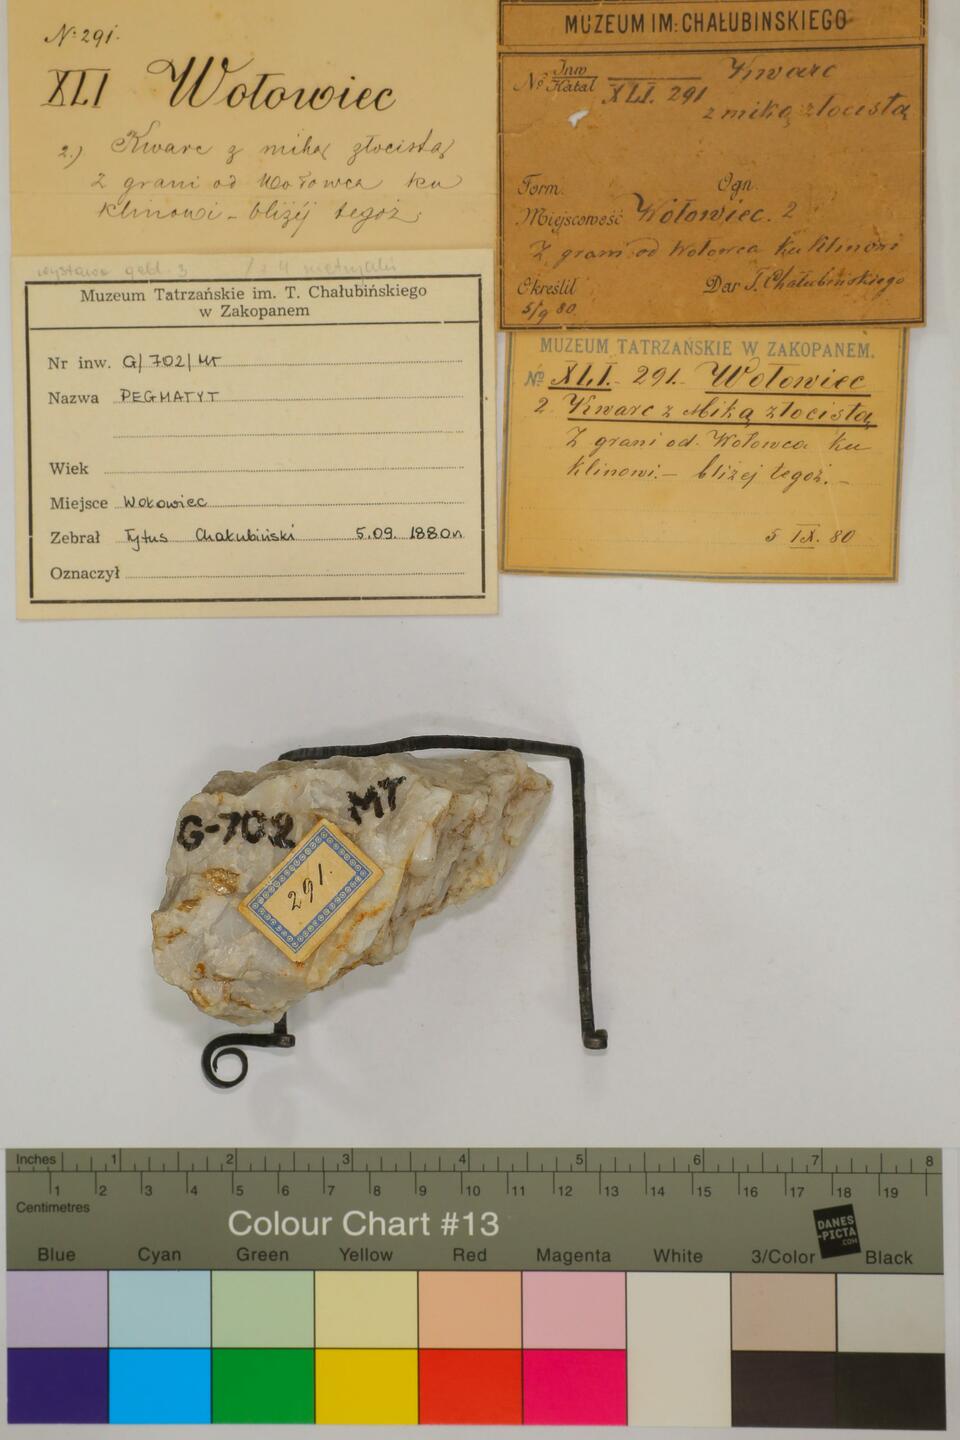 № 291.
XLI Wołowiec
2.) Kwarc z miką złocistą
Z grani od Wołowca ku
Klinowi - bliżéj tegoż.
MUZEUM IM. CHAŁUBIŃSKIEGO
№ Inw
Katal
XLI. 291
Kwarc
z miką złocistą
Form.
Ogn.
Miejscowość Wołowiec. 2
Z grani od Wołowca ku Klinowi
Określił
Dar T. Chałubińskiego
5/9 80
wystawa geol. 3
Muzeum Tatrzańskie im. T. Chałubińskiego
w Zakopanem
Nr inw. G/702/MT
Nazwa PEGMATYT
Wiek
Miejsce Wołowiec
Zebrał Tytus Chałubiński 5.09. 1880r.
Oznaczył
MUZEUM TATRZAŃSKIE W ZAKOPANEM.
№ XLI. 291. Wołowiec
2. Kwarc z Miką złocistą
Z grani od Wołowca ku
Klinowi. - bliżej tegoż. -
5 IX. 80
G-702 MT
291.
Inches 1 2 3 4 5 6 7 8
1 2 3 4 5 6 7 8 9 10 11 12 13 14 15 16 17 18 19
Centimetres
Colour Chart #13
DANES
-PICTA
.COM
Blue Cyan Green Yellow Red Magenta White 3/Color Black